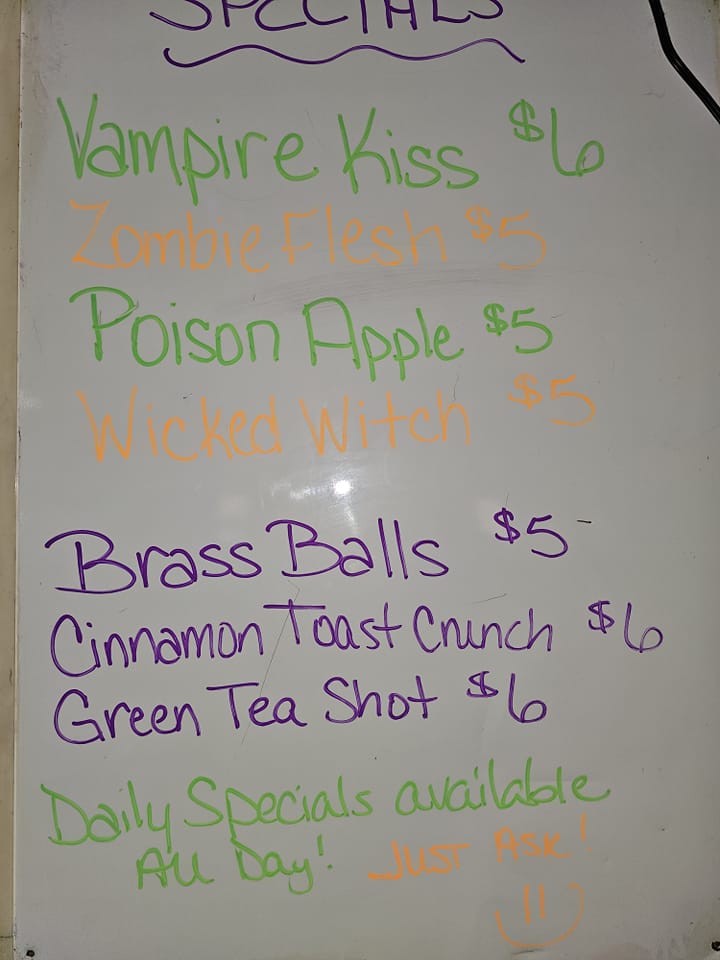 SPECIALS
Vampire Kiss $6
Zombie Flesh $5
Poison Apple $5
Wicked Witch $5
Brass Balls $5
Cinnamon Toast Crunch $6
Green Tea Shot $6
Daily Specials available
All Day! Just Ask!